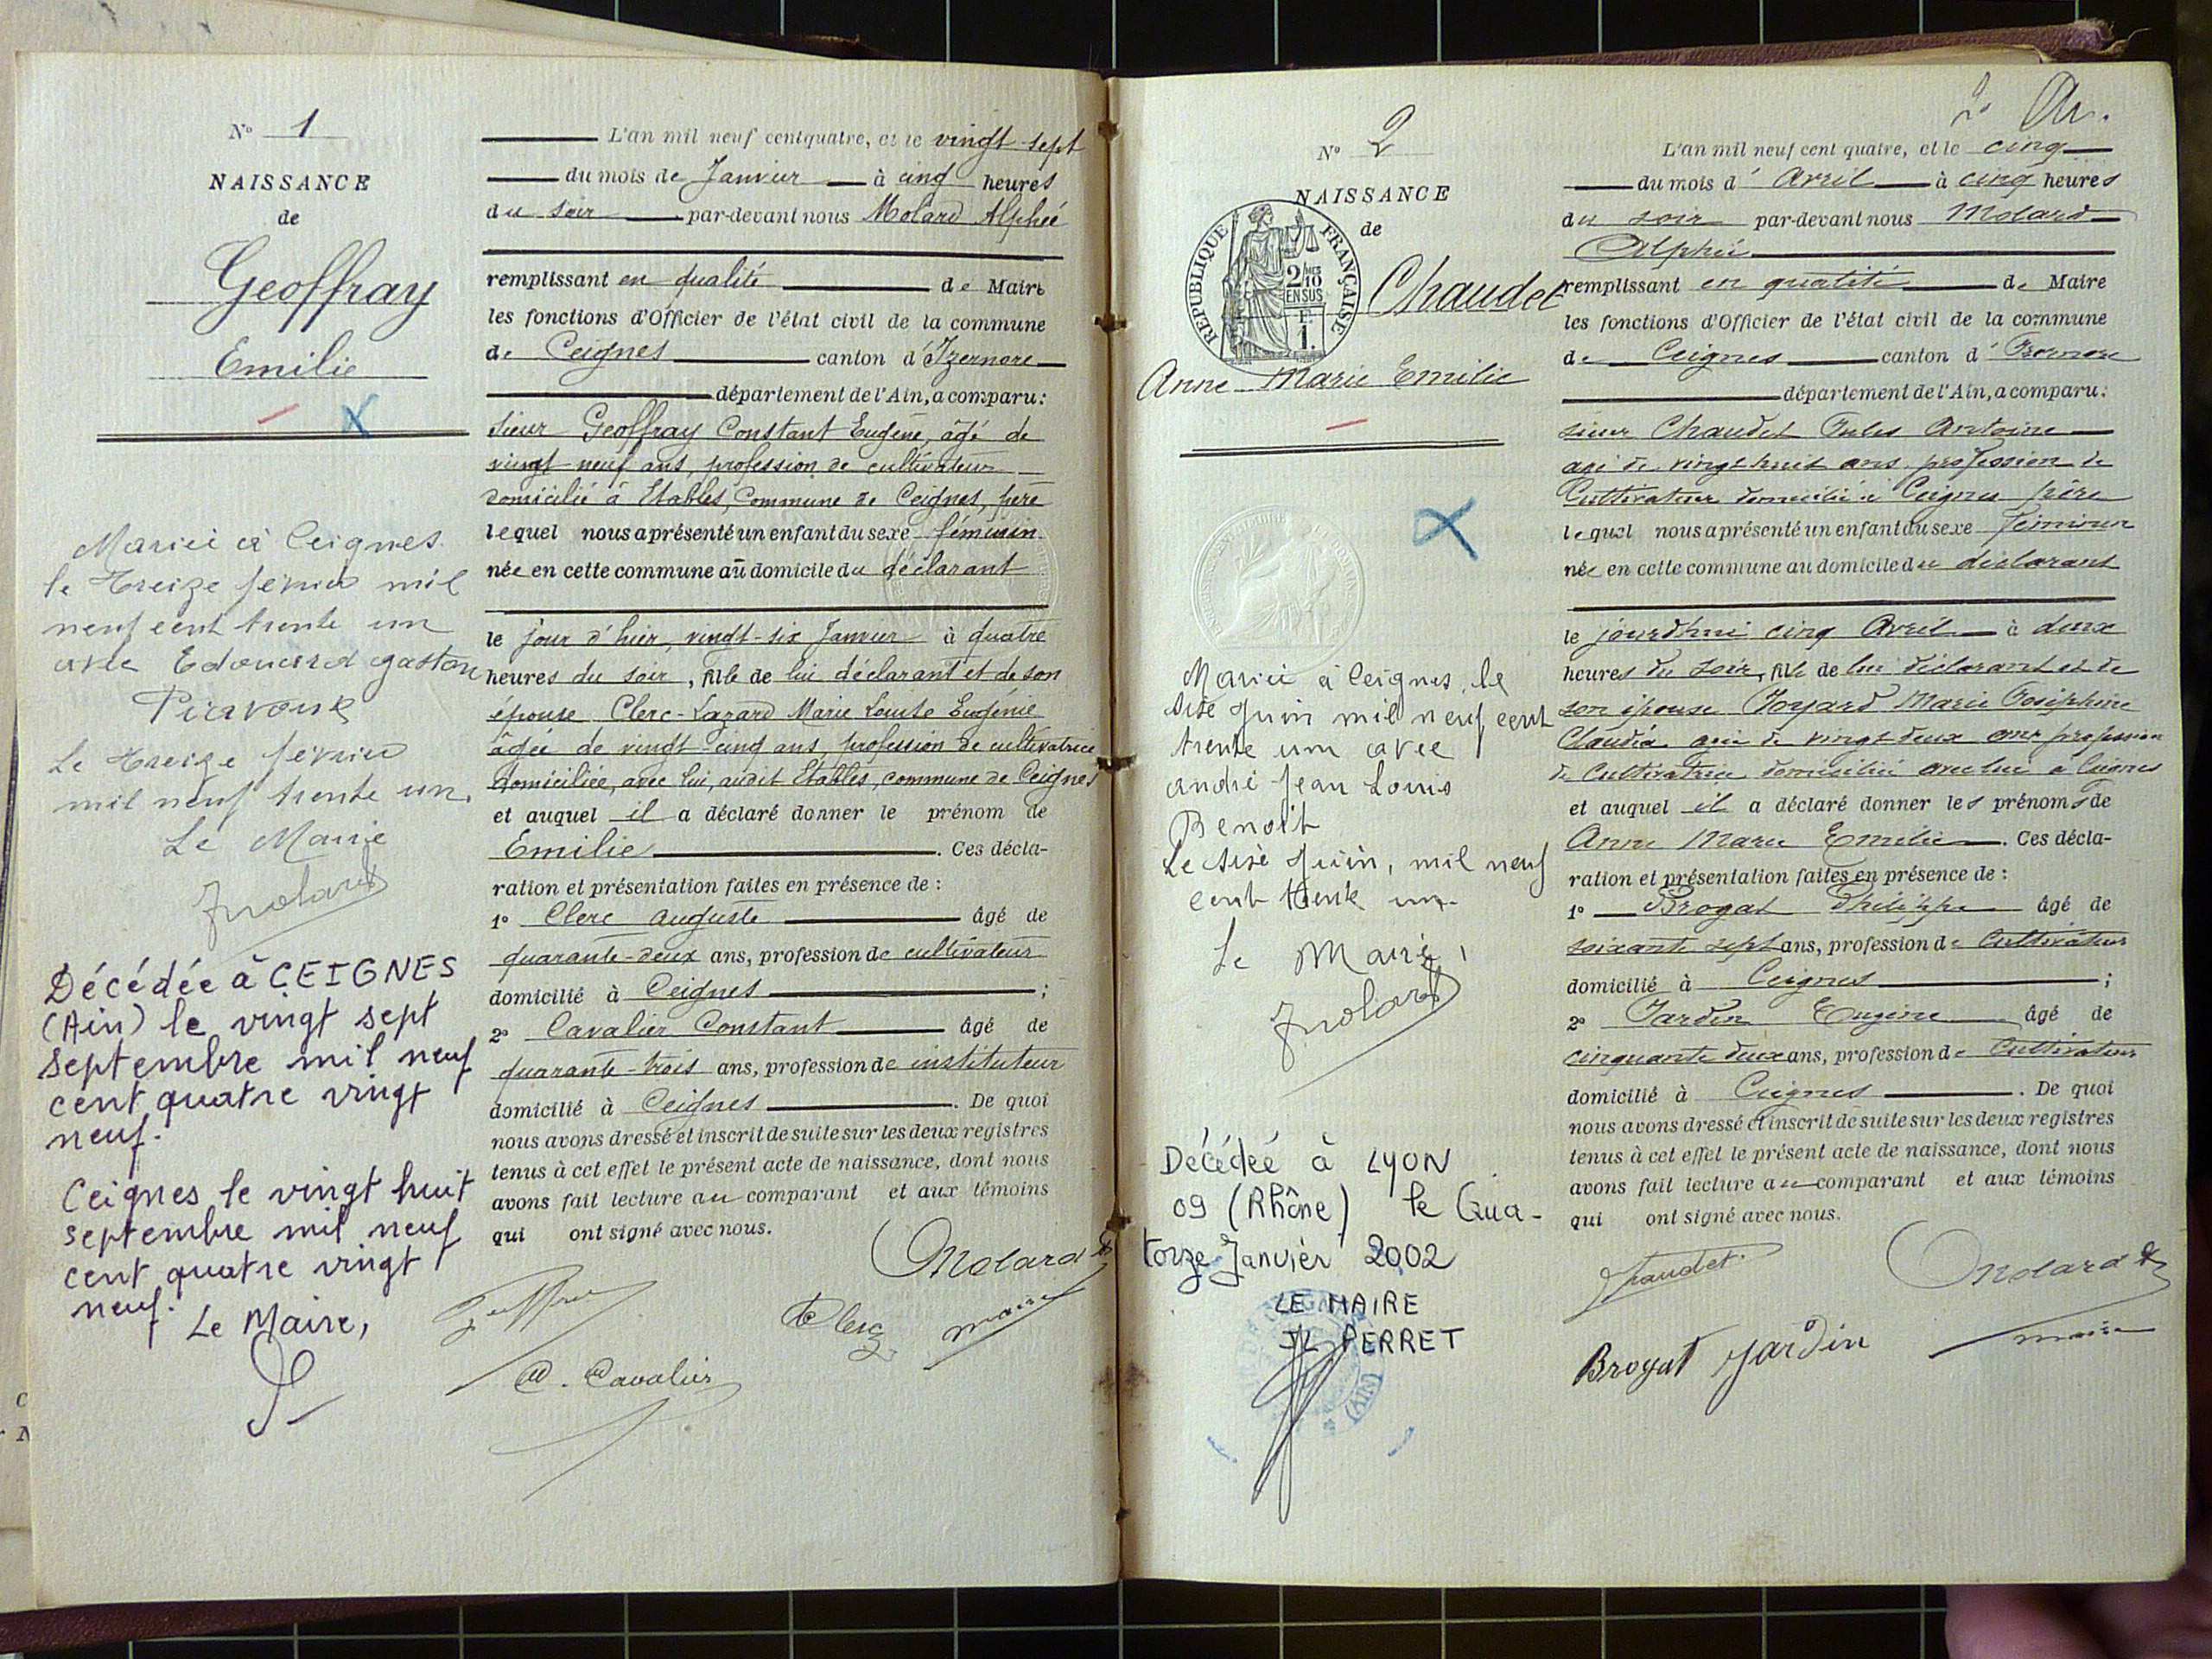 N° 1
NAISSANCE
de
Geoffray
Emilie
Mariée à Ceignes
le treize février mil
neuf cent trente un
avec Edouard Gaston
Le treize février
mil neuf trente un.
Le Maire
Molard
Décédée à CEIGNES
(Ain) le vingt sept
septembre mil neuf
cent quatre vingt
neuf.
Ceignes le vingt huit
septembre mil neuf
cent quatre vingt
neuf.
Le Maire,
L'an mil neuf cent quatre, et le vingt-sept
du mois de Janvier à cinq heures
du soir par-devant nous Molard Alphée
remplissant en qualité de Maire
les fonctions d'Officier de l'état civil de la commune
de Ceignes canton d'Izernore
département de l'Ain, a comparu:
sieur Geoffray Constant Eugène, âgé de
vingt neuf ans, profession de cultivateur
domicilié à Etables, Commune de Ceignes, père
lequel nous a présenté un enfant du sexe féminin
née en cette commune au domicile du déclarant
le jour d'hier, vingt-six Janvier à quatre
heures du soir, fille de lui déclarant et de son
épouse Clerc-Lazard Marie Louise Eugénie
âgée de vingt-cinq ans, profession de cultivatrice
domiciliée, avec lui, audit Etables, commune de Ceignes
et auquel il a déclaré donner le prénom de
Emilie. Ces décla-
ration et présentation faites en présence de :
1° Clerc auguste âgé de
quarante-deux ans, profession de cultivateur
domicilié à Ceignes ;
2° Cavalier Constant âgé de
quarante-trois ans, profession de instituteur
domicilié à Ceignes. De quoi
nous avons dressé et inscrit de suite sur les deux registres
tenus à cet effet le présent acte de naissance, dont nous
avons fait lecture au comparant et aux témoins
qui ont signé avec nous.
Molard A
Clerc maire
C. Cavalier
N° 2
NAISSANCE
de
REPUBLIQUE FRANÇAISE
2/10
EN SUS
1.
Chaudet
Anne Marie Emilie
Mariée à Ceignes, le
juin mil neuf cent
trente un avec
andré Jean Louis
Benoit
Le juin, mil neuf
cent trente un.
Le Maire,
Molard
Décédée à LYON
09 (Rhône) le Qua-
torze Janvier 2002
LE MAIRE
JL PERRET
(AIN)
L'an mil neuf cent quatre, et le cinq
du mois d' Avril à cinq heures
du soir par-devant nous Molard
Alphée
remplissant en qualité de Maire
les fonctions d'Officier de l'état civil de la commune
de Ceignes canton d' Izernore
département de l'Ain, a comparu:
sieur Chaudet Jules Antoine
agé de vingt huit ans profession de
Cultivateur domicilié à Ceignes père
lequel nous a présenté un enfant du sexe féminin
née en cette commune au domicile du déclarant
le jourdhui cinq Avril à deux
heures du soir, fille de lui déclarant et de
son épouse Joyard Marie Joséphine
Claudia agée de vingt deux ans profession
de Cultivatrice domiciliée avec lui à Ceignes
et auquel il a déclaré donner les prénoms de
Anne Marie Emilie. Ces décla-
ration et présentation faites en présence de :
1° Brogat Philippe âgé de
soixante sept ans, profession de Cultivateur
domicilié à Ceignes ;
2° Jardin Eugène âgé de
cinquante deux ans, profession de Cultivateur
domicilié à Ceignes. De quoi
nous avons dressé et inscrit de suite sur les deux registres
tenus à cet effet le présent acte de naissance, dont nous
avons fait lecture au comparant et aux témoins
qui ont signé avec nous.
Chaudet Molard A
Brogat Jardin maire